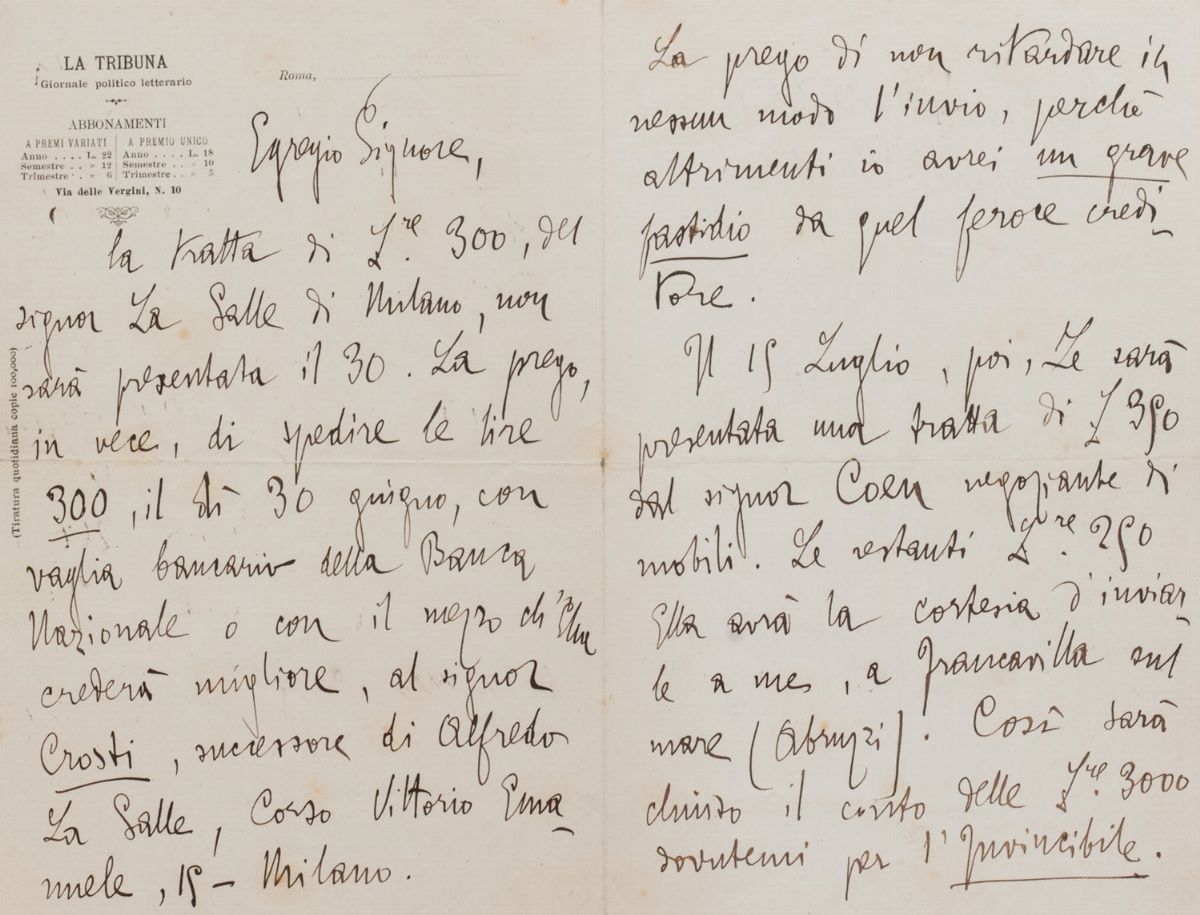 LA TRIBUNA
Giornale politico letterario
ABBONAMENTI
A PREMI VARIATI | A PREMIO UNICO
Anno .... L. 22 | Anno .... L. 18
Semestre .. » 12 | Semestre .. » 10
Trimestre .. » 6 | Trimestre .. » 5
Via delle Vergini, N. 10
(Tiratura quotidiana copie 100,000)
Roma,
Egregio Signore,
la tratta di L.re 300, del
signor La Salle di Milano, non
sarà presentata il 30. La prego,
in vece, di spedire le lire
300, il dì 30 giugno, con
vaglia bancario della Banca
Nazionale o con il mezzo ch'Ella
crederà migliore, al signor
Crosti, successore di Alfredo
La Salle, Corso Vittorio Ema-
nuele, 15 - Milano.
La prego di non ritardare in
nessun modo l'invio, perchè
altrimenti io avrei un grave
fastidio da quel feroce credi-
tore.
Il 15 Luglio, poi, Le sarà
presentata una tratta di L 350
dal signor Coen negoziante di
mobili. Le restanti L.re 250
Ella avrà la cortesia d'inviar-
le a me, a Francavilla sul
mare (Abruzzi). Così sarà
chiuso il conto delle L.re 3000
dovutemi per l'Invincibile.